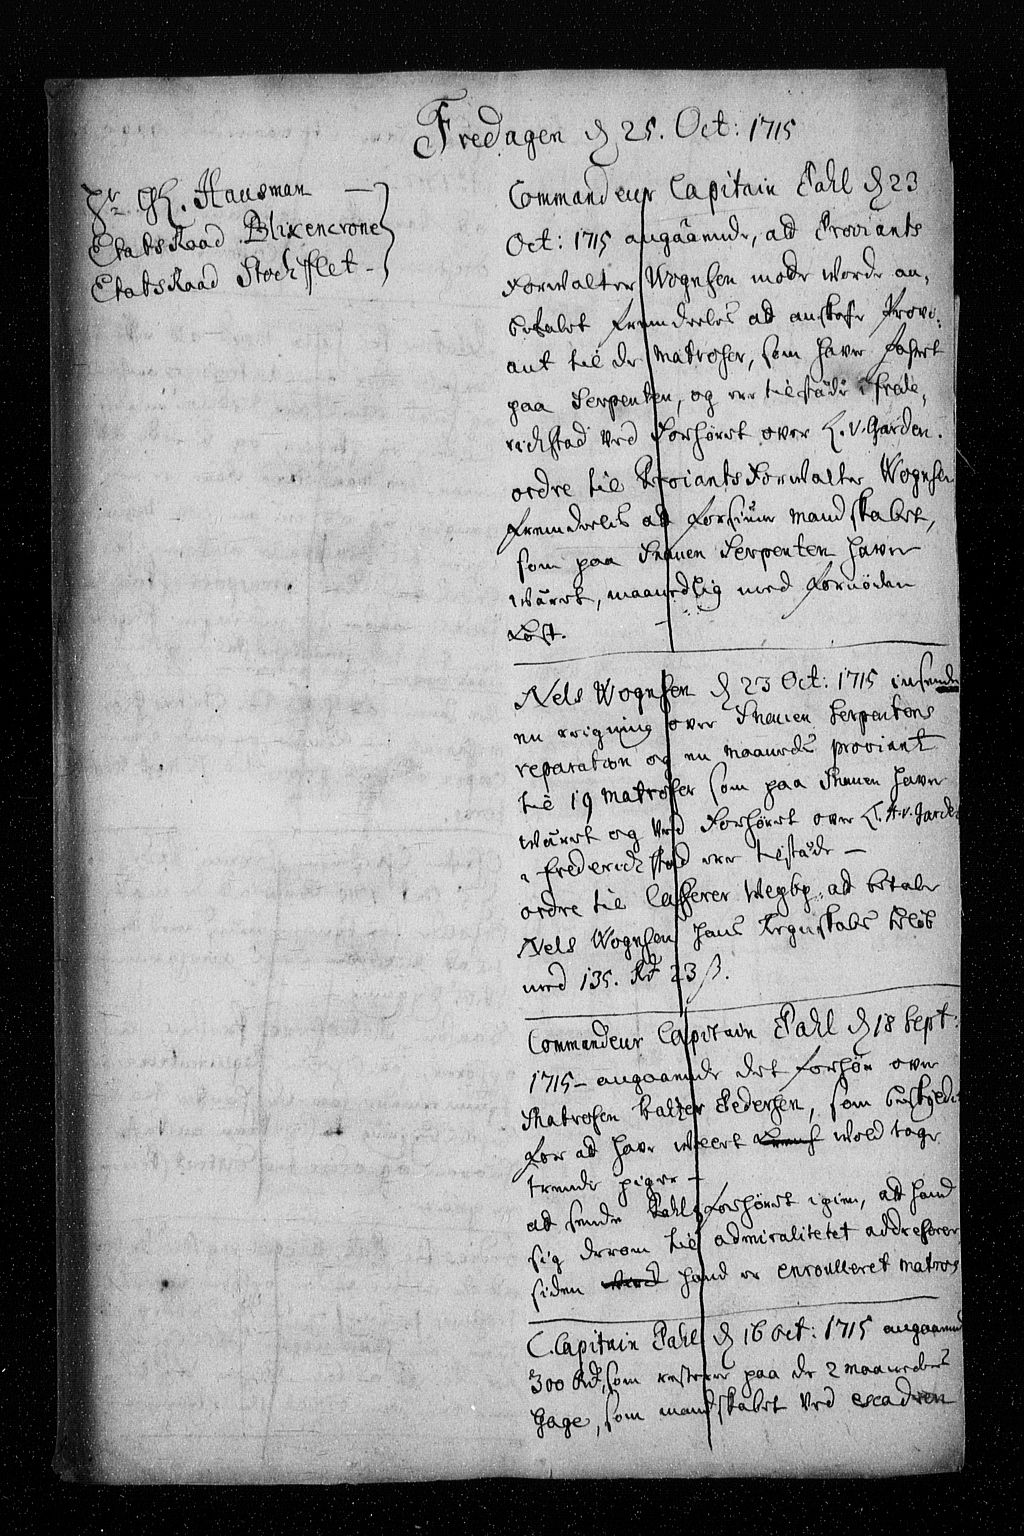 Fredagen d 25. Oct: 1715
Hr Gh. Hausman —
Etats Raad Blixencrone
Etats Raad Stockflet -
Commandeur Capitain Pahl d 23
Oct: 1715 angaaende, at Proviants
Forwalter Wognsen motte worde an-
befalet fremdeeles at anskafe Provi-
ant til de Matroser, som hafver fahret
paa Serpenten, og ere tilstæde i Frede-
richstad ved Forhöret over L. v. Garden.
ordre til Proviants Forwalter Wognsen
fremdeelis at forsiune mandskabet,
som paa Snauen Serpenten hafver
wäret, maanedlig med fornöden
Kost.
Nels Wognsen d 23 Oct: 1715 insende
en reigning over Snauen Serpentens
reparation og en maaneds proviant
til 19 matroser som paa Snauen hafver
wäret og ved Forhöret over L. v. Garden
i Frederichstad ere tilstäde —
ordre til Casserer Weyby: at betale
Nels Wognsen hans Regnskabs belöb
med 135. Rd 23 ß.
Commandeur Capitain Pahl d 18 Sept:
1715 - angaaende det forhör over
Matrosen Balzer Pedersen, som beskyldt
for at have wäret wold tage
trende piger —
at sende Pahl forhöret igien, at hand
sig derom til admiralitetet addreserer
siden hand er enroulleret matros
C. Capitain Pahl d 16 Oct: 1715 angaaend
300 Rd, som resterer paa de 2 maaneders
Gage, som mandskabet ved escadren